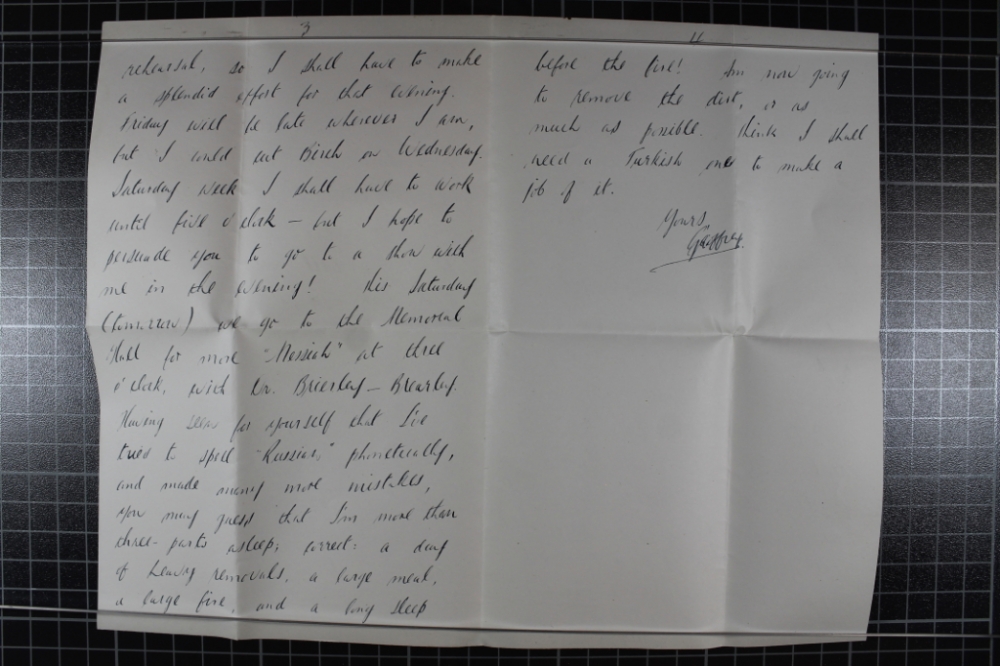 3
rehearsal, so I shall have to make
a splendid effort for that evening.
Friday will be late wherever I am,
but I could cut Birch on Wednesday.
Saturday week I shall have to work
until five o'clock – but I hope to
persuade you to go to a show with
me in the evening! This Saturday
(tomorrow) we go to the Memorial
Hall for more "Messiah" at three
o'clock, with Dr. Brierley – Brearley.
Having seen for yourself that I've
tried to spell "Russian" phonetically,
and made many more mistakes,
you may guess that I'm more than
three-parts asleep; correct: a day
of heavy removals, a large meal,
a large fire, and a long sleep
4
before the fire! Am now going
to remove the dirt, or as
much as possible. Think I shall
need a Turkish one to make a
job of it.
Yours,
Geoffrey.